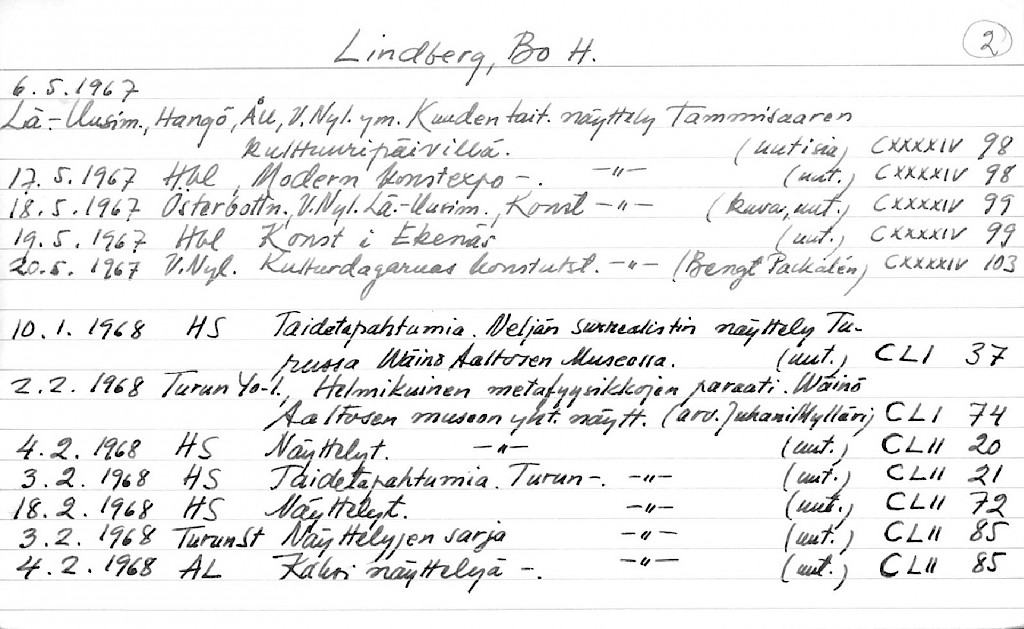 Lindberg, Bo H. 2
6.5.1967
Lä.-Uusim., Hangö, ÅU, V.Nyl. ym. Kuuden tait. näyttely Tammisaaren
kulttuuripäivillä. (uutisia) CXXXXIV 98
17.5.1967 Hbl, Modern konstexpo -. -"- (uut.) CXXXXIV 98
18.5.1967 Österbottn., V.Nyl. Lä.-Uusim., Konst -"- (kuva, uut.) CXXXXIV 99
19.5.1967 Hbl Konst i Ekenäs (uut.) CXXXXIV 99
20.5.1967 V.Nyl. Kulturdagarnas konstutst. -"- (Bengt Packalén) CXXXXIV 103
10.1.1968 HS Taidetapahtumia. Neljän surrealistin näyttely Tu-
russa Wäinö Aaltosen Museossa. (uut.) CLI 37
2.2.1968 Turun Yo-l., Helmikuinen metafyysikkojen paraati. Wäinö
Aaltosen museon yht. näytt. (arv. Juhani Mylläri) CLI 74
4.2.1968 HS Näyttelyt. -"- (uut.) CLII 20
3.2.1968 HS Taidetapahtumia. Turun -. -"- (uut.) CLII 21
18.2.1968 HS Näyttelyt. -"- (uut.) CLII 72
3.2.1968 TurunSt Näyttelyjen sarja -"- (uut.) CLII 85
4.2.1968 AL Kaksi näyttelyä -. -"- (uut.) CLII 85